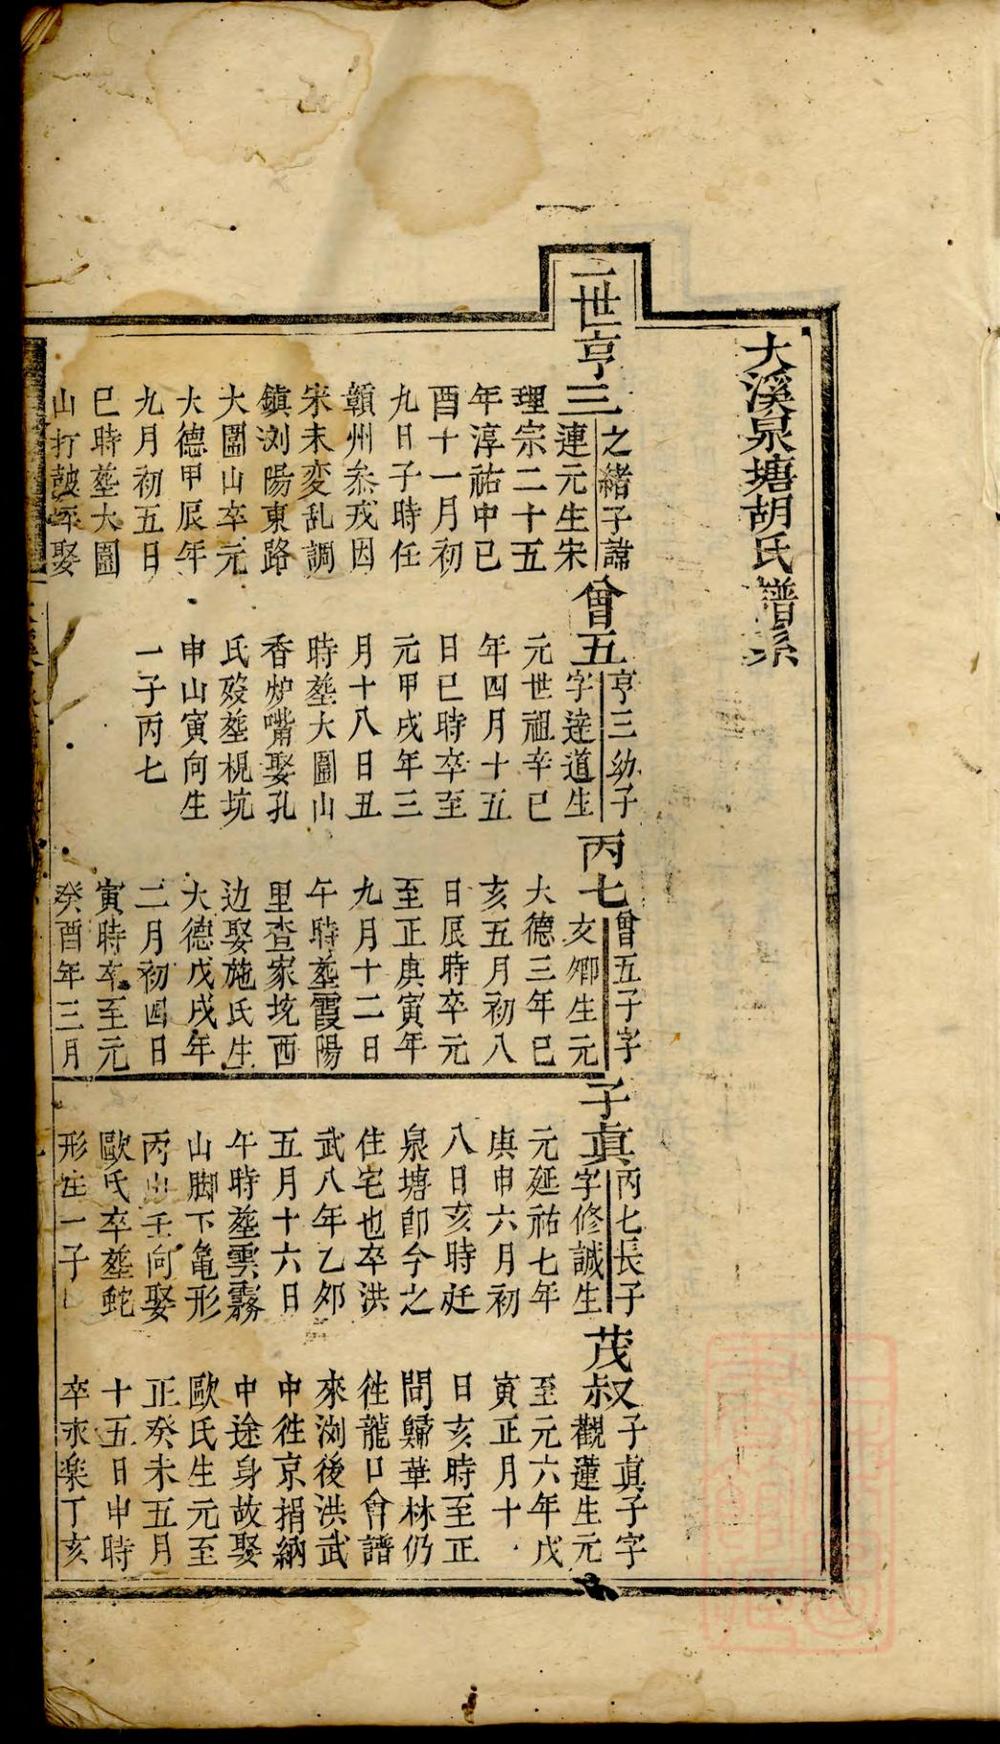 大溪泉塘胡氏譜系
二世亨三
之緒子諱
連元生宋
理宗二十五
年淳祐申巳
酉十一月初
九日子時任
贛州叅戎因
宋末变乱調
鎮浏陽東路
大圍山卒元
大德甲辰年
九月初五日
巳時塟大圍
山打鼓坪娶
曾五
亨三幼子
字逹道生
元世祖辛巳
年四月十五
日巳時卒至
元甲戌年三
月十八日丑
時塟大圍山
香炉嘴娶孔
氏歿塟梘坑
申山寅向生
一子丙七
丙七
曾五子字
友卿生元
大德三年巳
亥五月初八
日辰時卒元
至正庚寅年
九月十二日
午時塟霞陽
里查家坑西
边娶施氏生
大德戊戌年
二月初四日
寅時卒至元
癸酉年三月
子眞
丙七長子
字修誠生
元延祐七年
庚申六月初
八日亥時迁
泉塘卽今之
住宅也卒洪
武八年乙夘
五月十六日
午時塟雲霧
山脚下亀形
丙山壬向娶
歐氏卒塟蛇
形庄一子
茂叔
子眞子字
觀蓮生元
至元六年戊
寅正月十
日亥時至正
間歸華林仍
徃龍口會譜
來浏後洪武
中徃京捐納
中途身故娶
歐氏生元至
正癸未五月
十五日申時
卒永楽丁亥